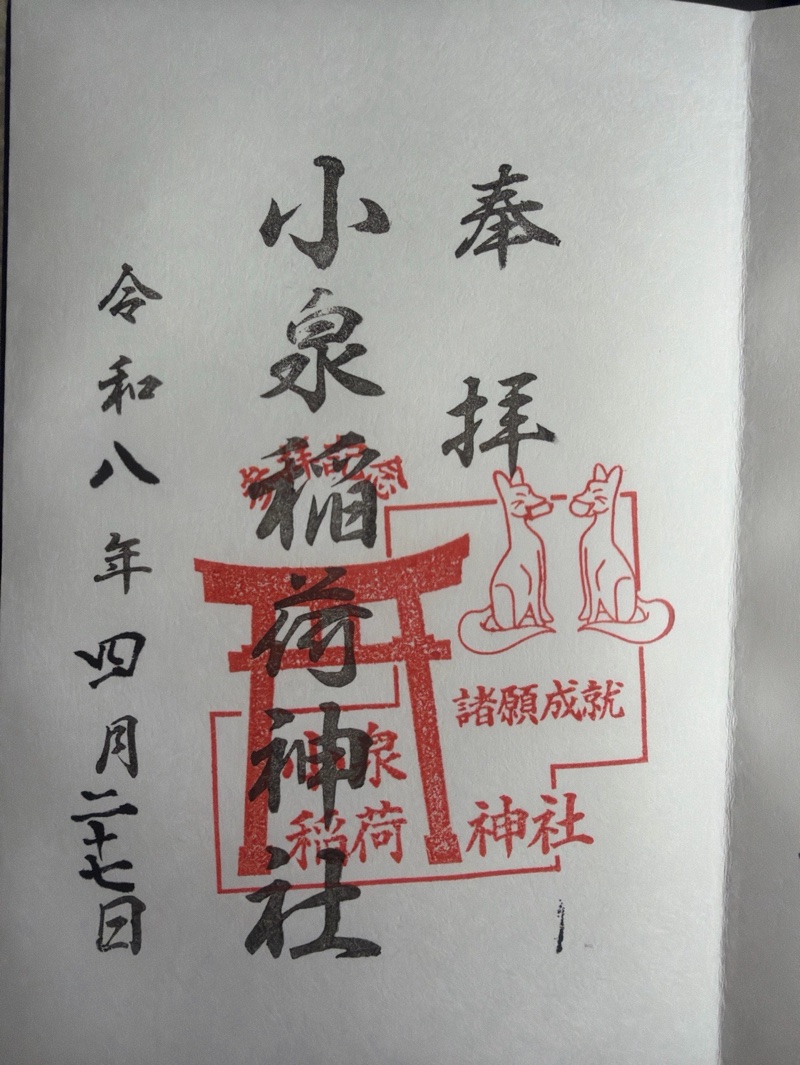 奉拝
小泉稲荷神社
令和八年四月二十七日
参拝記念
諸願成就
小泉
稲荷神社